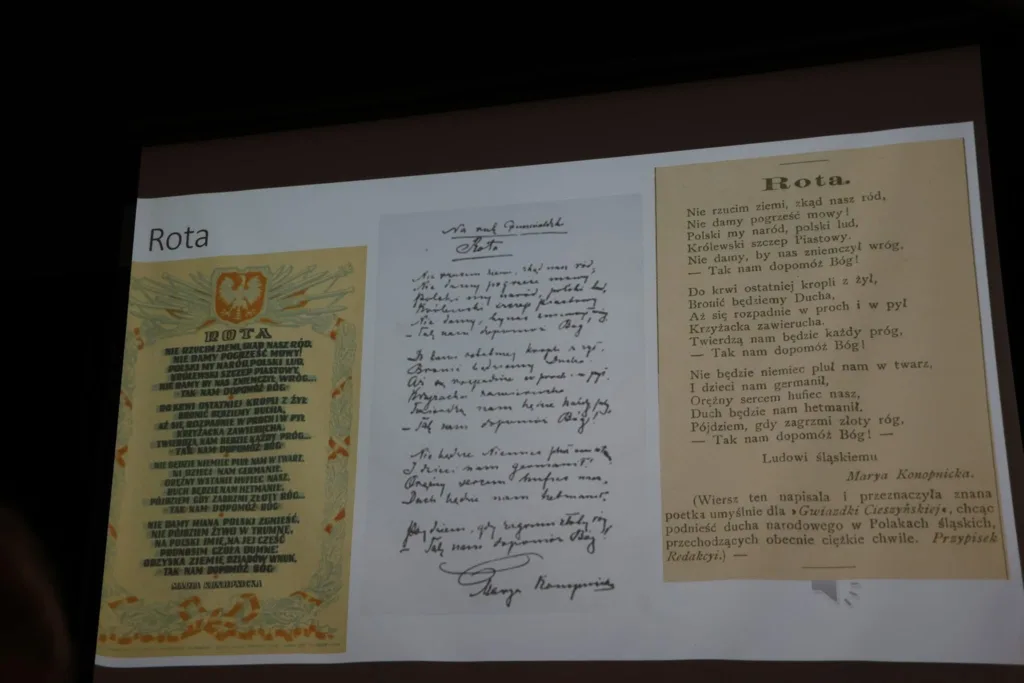 Rota
ROTA
NIE RZUCIM ZIEMI, SKĄD NASZ RÓD,
NIE DAMY POGRZEŚĆ MOWY!
POLSKI MY NARÓD, POLSKI LUD,
KRÓLEWSKI SZCZEP PIASTOWY,
NIE DAMY BY NAS ZNIEMCZYŁ WRÓG...
TAK NAM DOPOMÓŻ BÓG
DO KRWI OSTATNIEJ KROPLI Z ŻYŁ
BRONIĆ BĘDZIEMY DUCHA,
AŻ SIĘ ROZPADNIE W PROCH I W PYŁ
KRZYŻACKA ZAWIERUCHA.
TWIERDZĄ NAM BĘDZIE KAŻDY PRÓG...
TAK NAM DOPOMÓŻ BÓG
NIE BĘDZIE NIEMIEC PLUŁ NAM W TWARZ,
NI DZIECI NAM GERMANIŁ,
ORĘŻNY WSTANIE HUFIEC NASZ,
DUCH BĘDZIE NAM HETMANIŁ,
PÓJDZIEM GDY ZABRZMI ZŁOTY RÓG...
TAK NAM DOPOMÓŻ BÓG
NIE DAMY MIANA POLSKI ZGNIEŚĆ,
NIE PÓJDZIEM ŻYWO W TRUMNĘ,
NA POLSKI IMIĘ, NA JEJ CZEŚĆ
PODNOSIM CZOŁA DUMNE.
ODZYSKA ZIEMIĘ DZIADÓW WNUK,
TAK NAM DOPOMÓŻ BÓG
MARIA KONOPNICKA
Na
Rota
Nie rzucim ziemi, zkąd nasz ród,
Nie damy pogrześć mowy,
Polski my naród, polski lud,
Królewski szczep piastowy
Nie damy, by nas zniemczył wróg
– Tak nam dopomóż Bóg!
Do krwi ostatniej kropli z żył
Bronić będziemy Ducha
Aż się rozpadnie w proch i w pył
Krzyżacka zawierucha
Twierdzą nam będzie każdy próg
– Tak nam dopomóż Bóg!
Nie będzie Niemiec pluł nam w twarz
I dzieci nam germanił
Orężny sercem hufiec nasz,
Duch będzie nam hetmanił,
Pójdziem, gdy zagrzmi złoty róg
– Tak nam dopomóż Bóg
Marya Konopnicka
Rota.
Nie rzucim ziemi, zkąd nasz ród,
Nie damy pogrześć mowy!
Polski my naród, polski lud,
Królewski szczep Piastowy.
Nie damy, by nas zniemczył wróg,
— Tak nam dopomóż Bóg!
Do krwi ostatniej kropli z żył,
Bronić będziemy Ducha,
Aż się rozpadnie w proch i w pył
Krzyżacka zawierucha.
Twierdzą nam będzie każdy próg,
— Tak nam dopomóż Bóg!
Nie będzie niemiec pluł nam w twarz,
I dzieci nam germanił,
Orężny sercem hufiec nasz,
Duch będzie nam hetmanił.
Pójdziem, gdy zagrzmi złoty róg,
— Tak nam dopomóż Bóg! —
Ludowi śląskiemu
Marya Konopnicka.
(Wiersz ten napisała i przeznaczyła znana
poetka umyślnie dla »Gwiazdki Cieszyńskiej«, chcąc
podnieść ducha narodowego w Polakach śląskich,
przechodzących obecnie ciężkie chwile. Przypisek
Redakcyi.) —